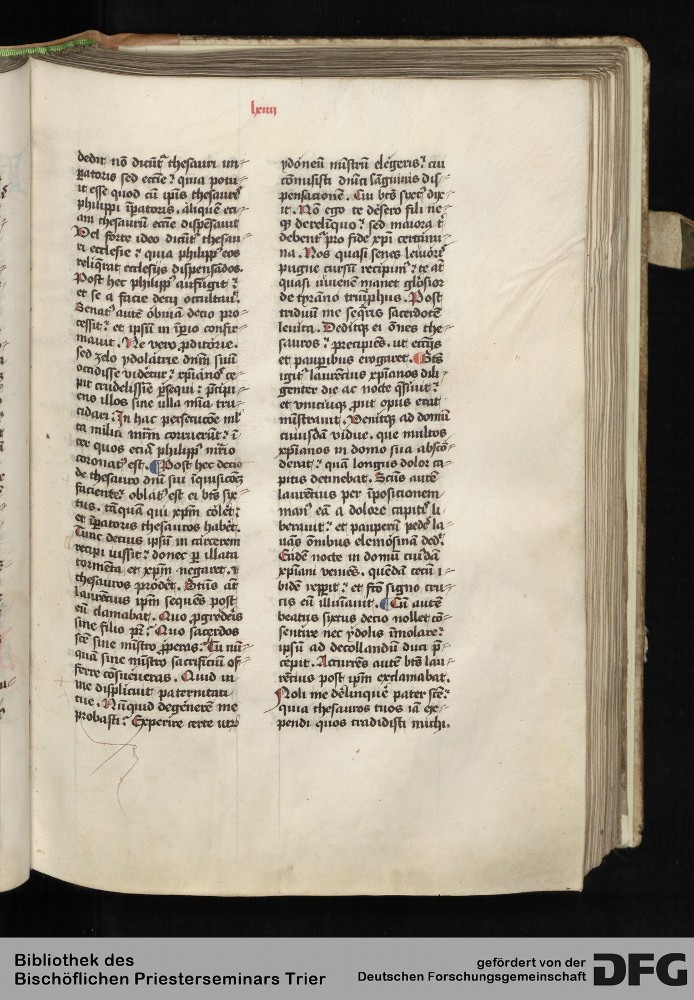 lxiiij
dedit nō dicūt͛ thesauri im-
ꝑatoris sed eccīe? quia potu-
it esse quod cū ip̄us thesauros
philippi īꝑatoris. aliquē eci-
am thesaurū eccīe dispensauit
Vel forte ideo dicūt͛ thesau-
ri ecclesie? quia philippꝰ eos
reliq̄rat ecclesijs dispensādos.
Post hec philippꝰ aufugit?
et se a facie decij occultauit.
Senatꝰ autē obuiā decio pro-
cessit? et ipsū in īꝑio confir-
mauit. Ne vero ꝓditorie.
sed zelo ydolatrie dn̄m suū
occidisse viderēt͛? xp̄ianos ce-
pit crudelissime ꝑsequi? p̄cipi-
ens illos sine ulla mīa tru-
cidari. In hac persecucōe ml̄-
ta milia mr̄m corruerūt? ī-
ter quos eciā philippꝰ mr̄io
coronatꝰ est. ¶ Post hec decio
de thesauro dn̄i sui īquisicōeꝫ
faciente? oblatꝰ est ei bt̄s six-
tus. tāquā qui xp̄m coleret?
et īꝑatoris thesauros haberet.
Tunc decius ipsū in carcerem
recipi iussit? donec ꝑ illata
tormēta et xp̄m negaret. et
thesauros ꝓderet. Bt̄us aūt
laurētius ip̄m sequēs post
eū clamabat. Quo ꝓgrederis
sine filio pr̄? Quo sacerdos
scē sine mīstro ꝓperas? Tu nū-
quā sine mīstro sacrificiū of-
ferre cōsueueras. Quid in
me displicuit paternitati
tue. Nūquid degenerē me
probasti? Experire certe utrū
ydoneū mīstrū elegeris? cui
cōmisisti dn̄ici sāguinis dis-
pensacionē. Cui bt̄s sixtꝰ dix-
it. Nō ego te desero fili ne-
qꝫ derelīquo? sed maiora t͛
debent͛ pro fide xp̄i certami-
na. Nos quasi senes leuioris
pugne cursū recipimꝰ? te aūt
quasi iuuenē manet glōsior
de tyrāno triūphus. Post
triduū me seq̄ris sacerdotē
leuita. Deditqꝫ ei ōnes the-
sauros? precipiēs. ut ecc̄ijs
et pauꝑibus erogaret. ¶ Bt̄s
igit͛ laurētius xp̄ianos dili-
genter die ac nocte q̄siuit?
et vnicuiqꝫ prout opus erat
mīstrauit. Venitqꝫ ad domū
cuiusdā vidue. que multos
xp̄ianos in domo sua abscō-
derat? quā longus dolor ca-
pitis detinebat. Sctūs autē
laurētius per īpositionem
manꝰ eā a dolore capitis li-
berauit? et pauperū pedes la-
uās ōnibus elemosinā dedit.
Eadē nocte in domū cuiusdā
xp̄iani veniēs. quēdā cecū i-
bidē repp̄it? et fc̄o signo cru-
cis eū illuīauit. ¶ Cū autē
beatus sixtus decio nollet cō-
sentire nec ydolis īmolare?
ipsū ad decollandū duci p̄-
cepit. Accurrēs autē bt̄s lau-
rētius post ip̄m exclamabat.
Noli me delinquē pater scē?
quia thesauros tuos iā ex-
pendi quos tradidisti michi.
Bibliothek des
Bischöflichen Priesterseminars Trier
gefördert von der
Deutschen Forschungsgemeinschaft
DFG